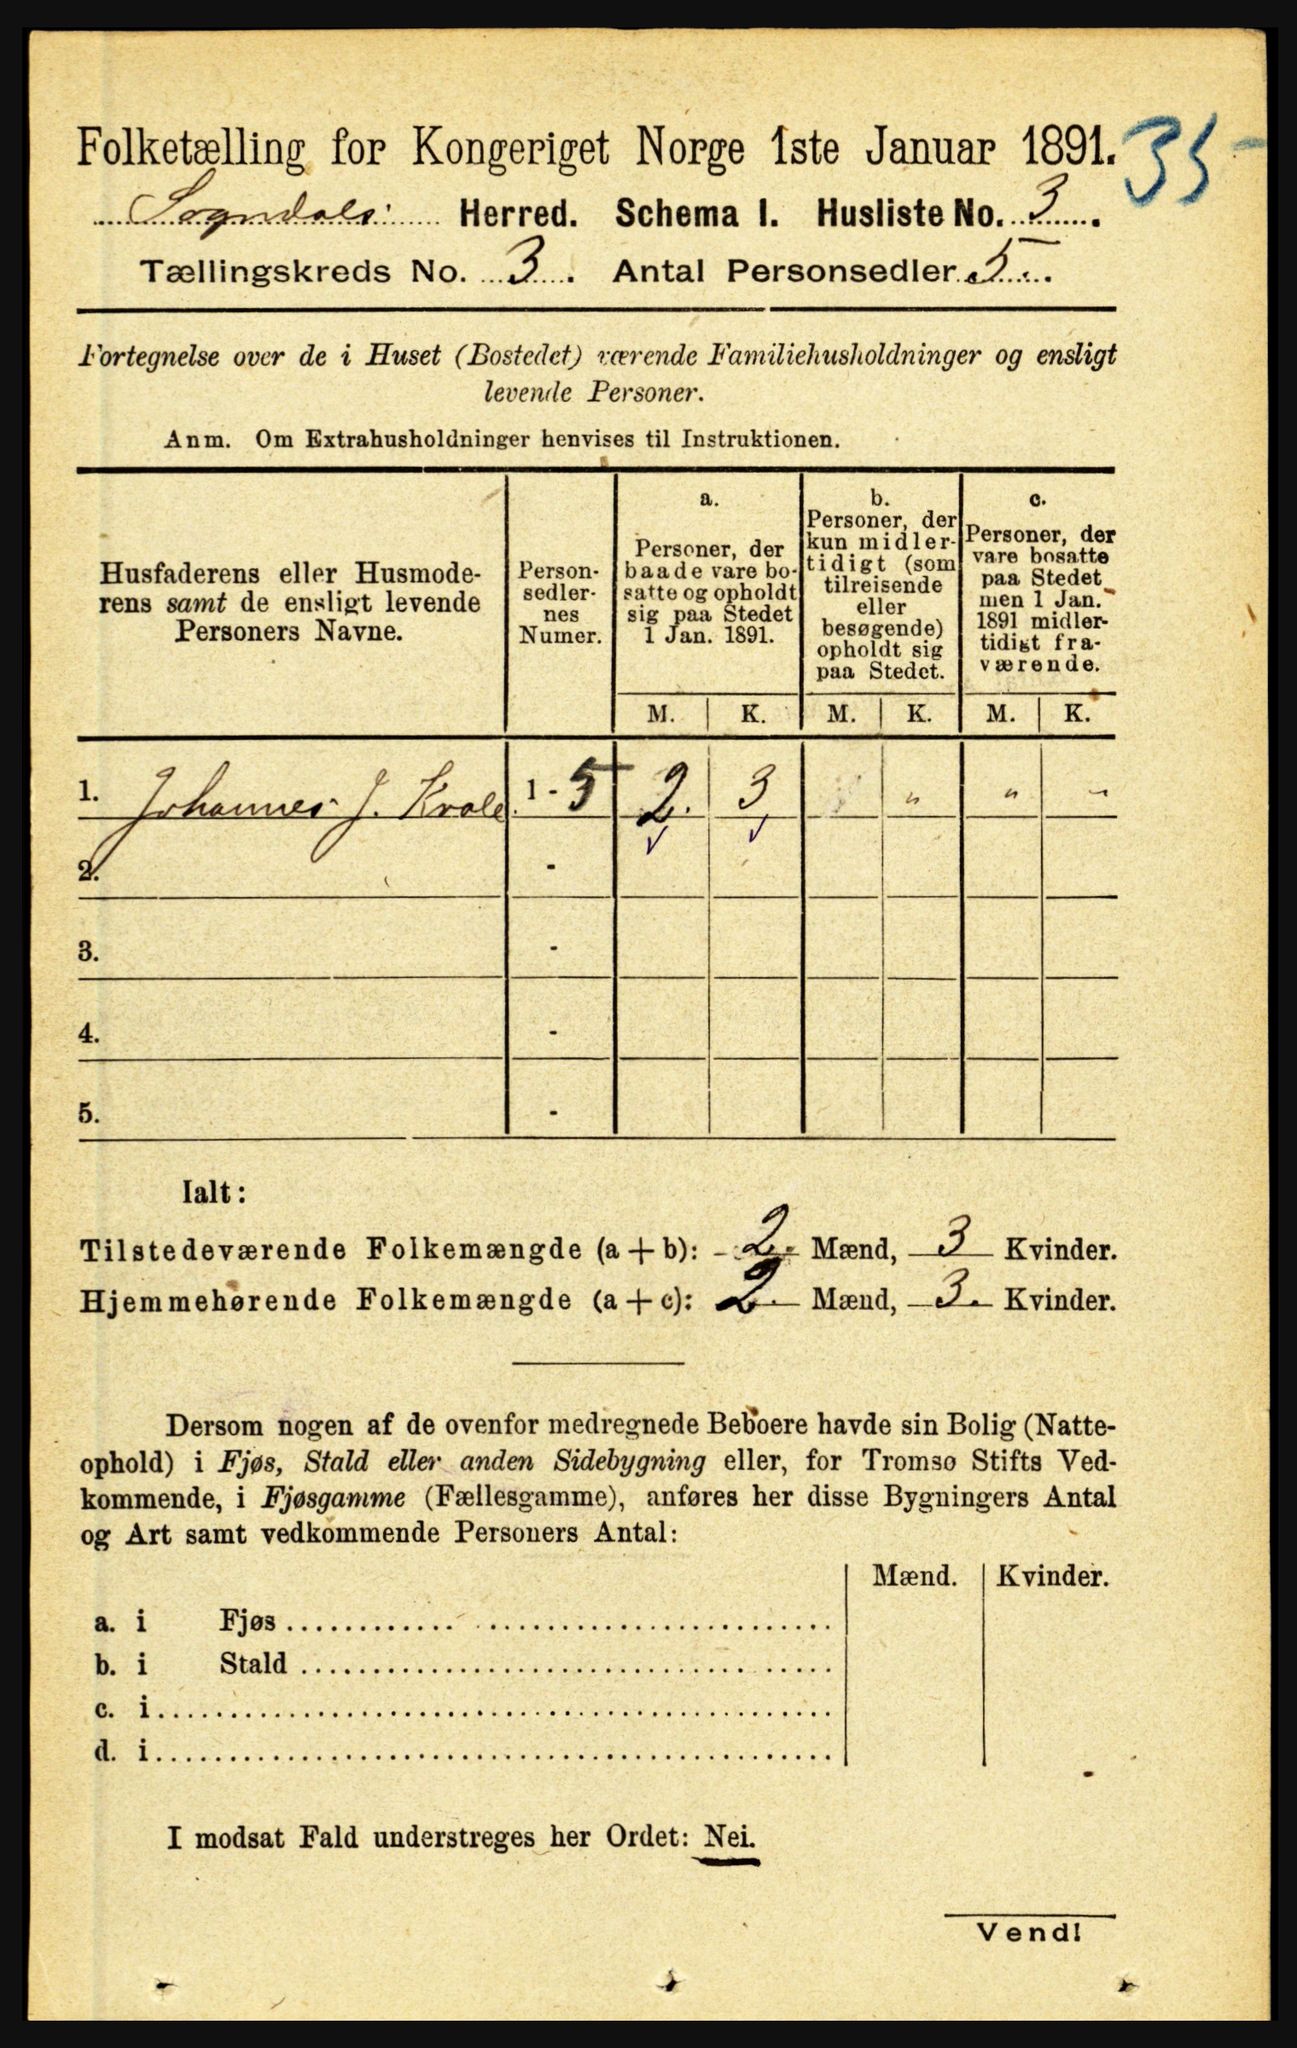 Folketælling for Kongeriget Norge 1ste Januar 1891. 35
Sogndals Herred. Schema I. Husliste No. 3.
Tællingskreds No. 3. Antal Personsedler 5.
Fortegnelse over de i Huset (Bostedet) værende Familiehusholdninger og ensligt
levende Personer.
Anm. Om Extrahusholdninger henvises til Instruktionen.
Husfaderens eller Husmode-
rens samt de ensligt levende
Personers Navne.
Person-
sedler-
nes
Numer.
a.
Personer, der
baade vare bo-
satte og opholdt
sig paa Stedet
1 Jan. 1891.
b.
Personer, der
kun midler-
tidigt (som
tilreisende
eller
besøgende)
opholdt sig
paa Stedet.
c.
Personer, der
vare bosatte
paa Stedet
men 1 Jan.
1891 midler-
tidigt fra-
værende.
M. K. M. K. M. K.
1. Johannes J. Kvale 1 - 5 2. 3 " " "
2. -
3. -
4. -
5. -
Ialt:
Tilstedeværende Folkemængde (a + b): 2. Mænd, 3 Kvinder.
Hjemmehørende Folkemængde (a + c): 2. Mænd, 3. Kvinder.
Dersom nogen af de ovenfor medregnede Beboere havde sin Bolig (Natte-
ophold) i Fjøs, Stald eller anden Sidebygning eller, for Tromsø Stifts Ved-
kommende, i Fjøsgamme (Fællesgamme), anføres her disse Bygningers Antal
og Art samt vedkommende Personers Antal:
Mænd. Kvinder.
a. i Fjøs
b. i Stald
c. i
d. i
I modsat Fald understreges her Ordet: Nei.
Vend!